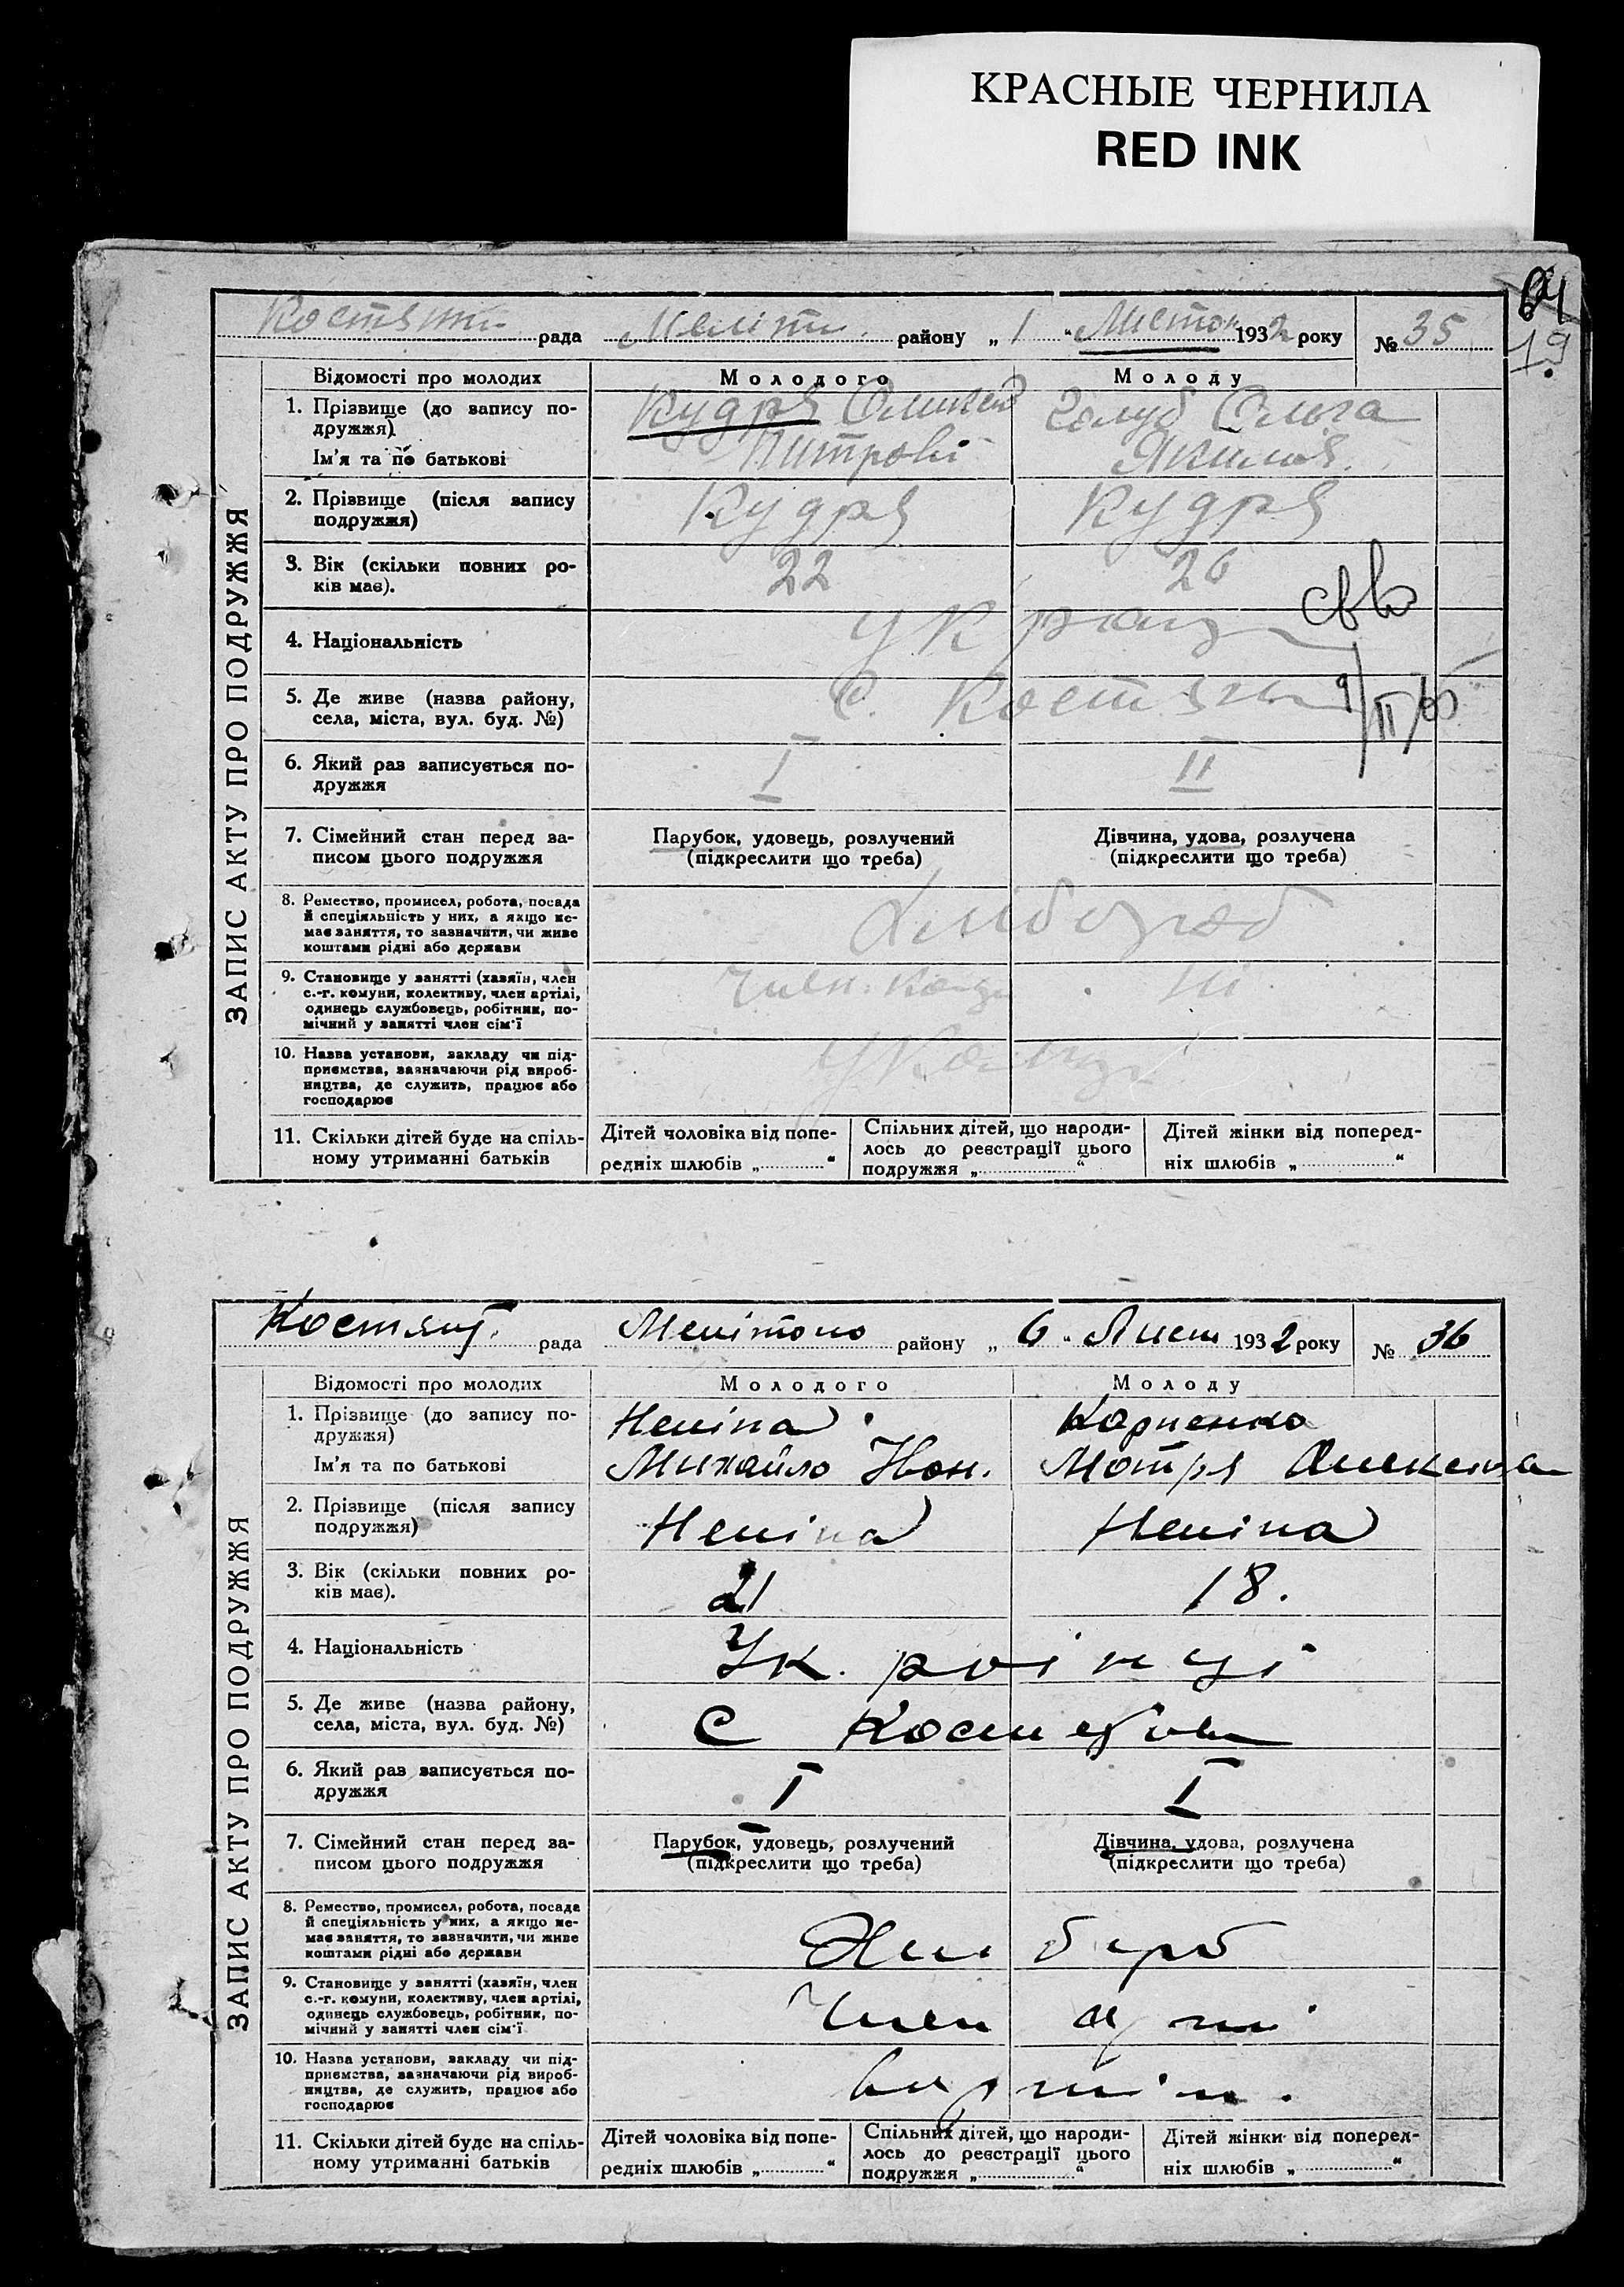 КРАСНЫЕ ЧЕРНИЛА
RED INK
19
рада району „ 1 “ 1932 року № 35
ЗАПИС АКТУ ПРО ПОДРУЖЖЯ
Відомості про молодих Молодого Молоду
1. Прізвище (до запису по-
дружжя)
Ім'я та по батькові
Кудря
Голуб Ольга
2. Прізвище (після запису
подружжя)
Кудря Кудря
3. Вік (скільки повних ро-
ків має).
22 26
4. Національність
5. Де живе (назва району,
села, міста, вул. буд. №)
с.
6. Який раз записується по-
дружжя
I II
7. Сімейний стан перед за-
писом цього подружжя
Парубок, удовець, розлучений
(підкреслити що треба)
Дівчина, удова, розлучена
(підкреслити що треба)
8. Ремество, промисел, робота, посада
й спеціяльність у них, а якщо не-
має заняття, то зазначити, чи живе
коштами рідні або держави
9. Становище у занятті (хазяїн, член
с.-г. комуни, колективу, член артілі,
одинець службовець, робітник, по-
мічний у занятті член сім'ї
10. Назва установи, закладу чи під-
приємства, зазначаючи рід вироб-
ництва, де служить, працює або
господарює
11. Скільки дітей буде на спіль-
ному утриманні батьків
Дітей чоловіка від попе-
редніх шлюбів „ “
Спільних дітей, що народи-
лось до реєстрації цього
подружжя „ “
Дітей жінки від поперед-
ніх шлюбів „ “
рада району „ 6 “ Лист 1932 року № 36
ЗАПИС АКТУ ПРО ПОДРУЖЖЯ
Відомості про молодих Молодого Молоду
1. Прізвище (до запису по-
дружжя)
Ім'я та по батькові
Неліпа
Михайло Іван.
Карпенко
Мотря
2. Прізвище (після запису
подружжя)
Неліпа Неліпа
3. Вік (скільки повних ро-
ків має).
21 18.
4. Національність
Українці
5. Де живе (назва району,
села, міста, вул. буд. №)
С
6. Який раз записується по-
дружжя
I I
7. Сімейний стан перед за-
писом цього подружжя
Парубок, удовець, розлучений
(підкреслити що треба)
Дівчина, удова, розлучена
(підкреслити що треба)
8. Ремество, промисел, робота, посада
й спеціяльність у них, а якщо не-
має заняття, то зазначити, чи живе
коштами рідні або держави
9. Становище у занятті (хазяїн, член
с.-г. комуни, колективу, член артілі,
одинець службовець, робітник, по-
мічний у занятті член сім'ї
Член
10. Назва установи, закладу чи під-
приємства, зазначаючи рід вироб-
ництва, де служить, працює або
господарює
11. Скільки дітей буде на спіль-
ному утриманні батьків
Дітей чоловіка від попе-
редніх шлюбів „ “
Спільних дітей, що народи-
лось до реєстрації цього
подружжя „ “
Дітей жінки від поперед-
ніх шлюбів „ “